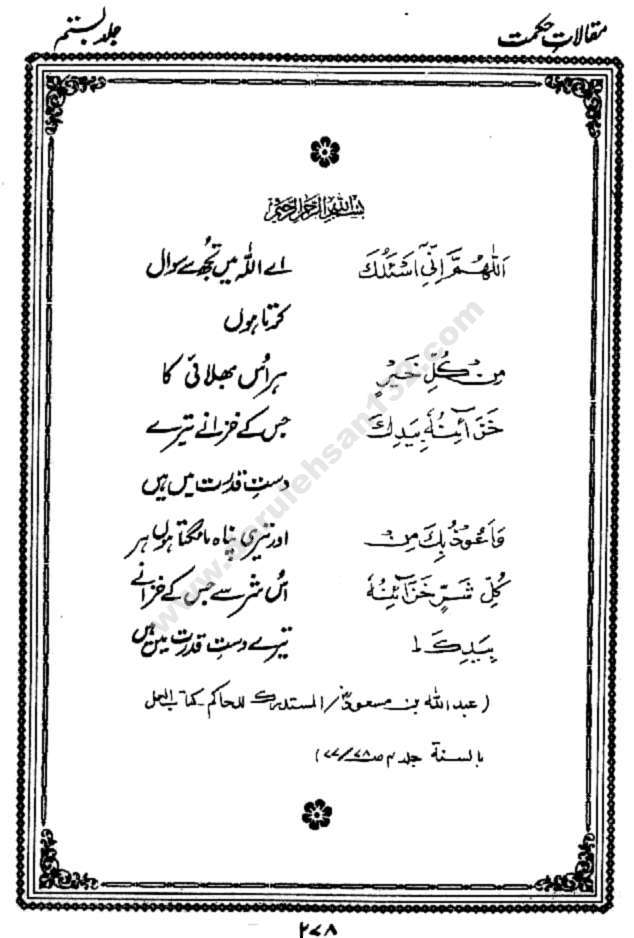 مقالاتِ حکمت
جلد بستم
بسم الله الرحمن الرحيم
اَللّٰهُمَّ اِنِّیْٓ اَسْئَلُكَ اے اللہ میں تجھ سے سوال
کرتا ہوں
مِنْ كُلِّ خَيْرٍ ہر اُس بھلائی کا
خَزَآئِنُهٗ بِيَدِكَ جس کے خزانے تیرے
دستِ قدرت میں ہیں
وَاَعُوْذُ بِكَ مِنْ اور تیری پناہ مانگتا ہوں ہر
كُلِّ شَرٍّ خَزَآئِنُهٗ اُس شر سے جس کے خزانے
بِيَدِكَ ا تیرے دستِ قدرت میں ہیں
(عبداللہ بن مسعودؓ/المستدرک للحاکم۔ کتاب العمل
بالسنة جلد ۲ ص ۷۸/۷۷)
۲۷۸
www.darulehsan132.com